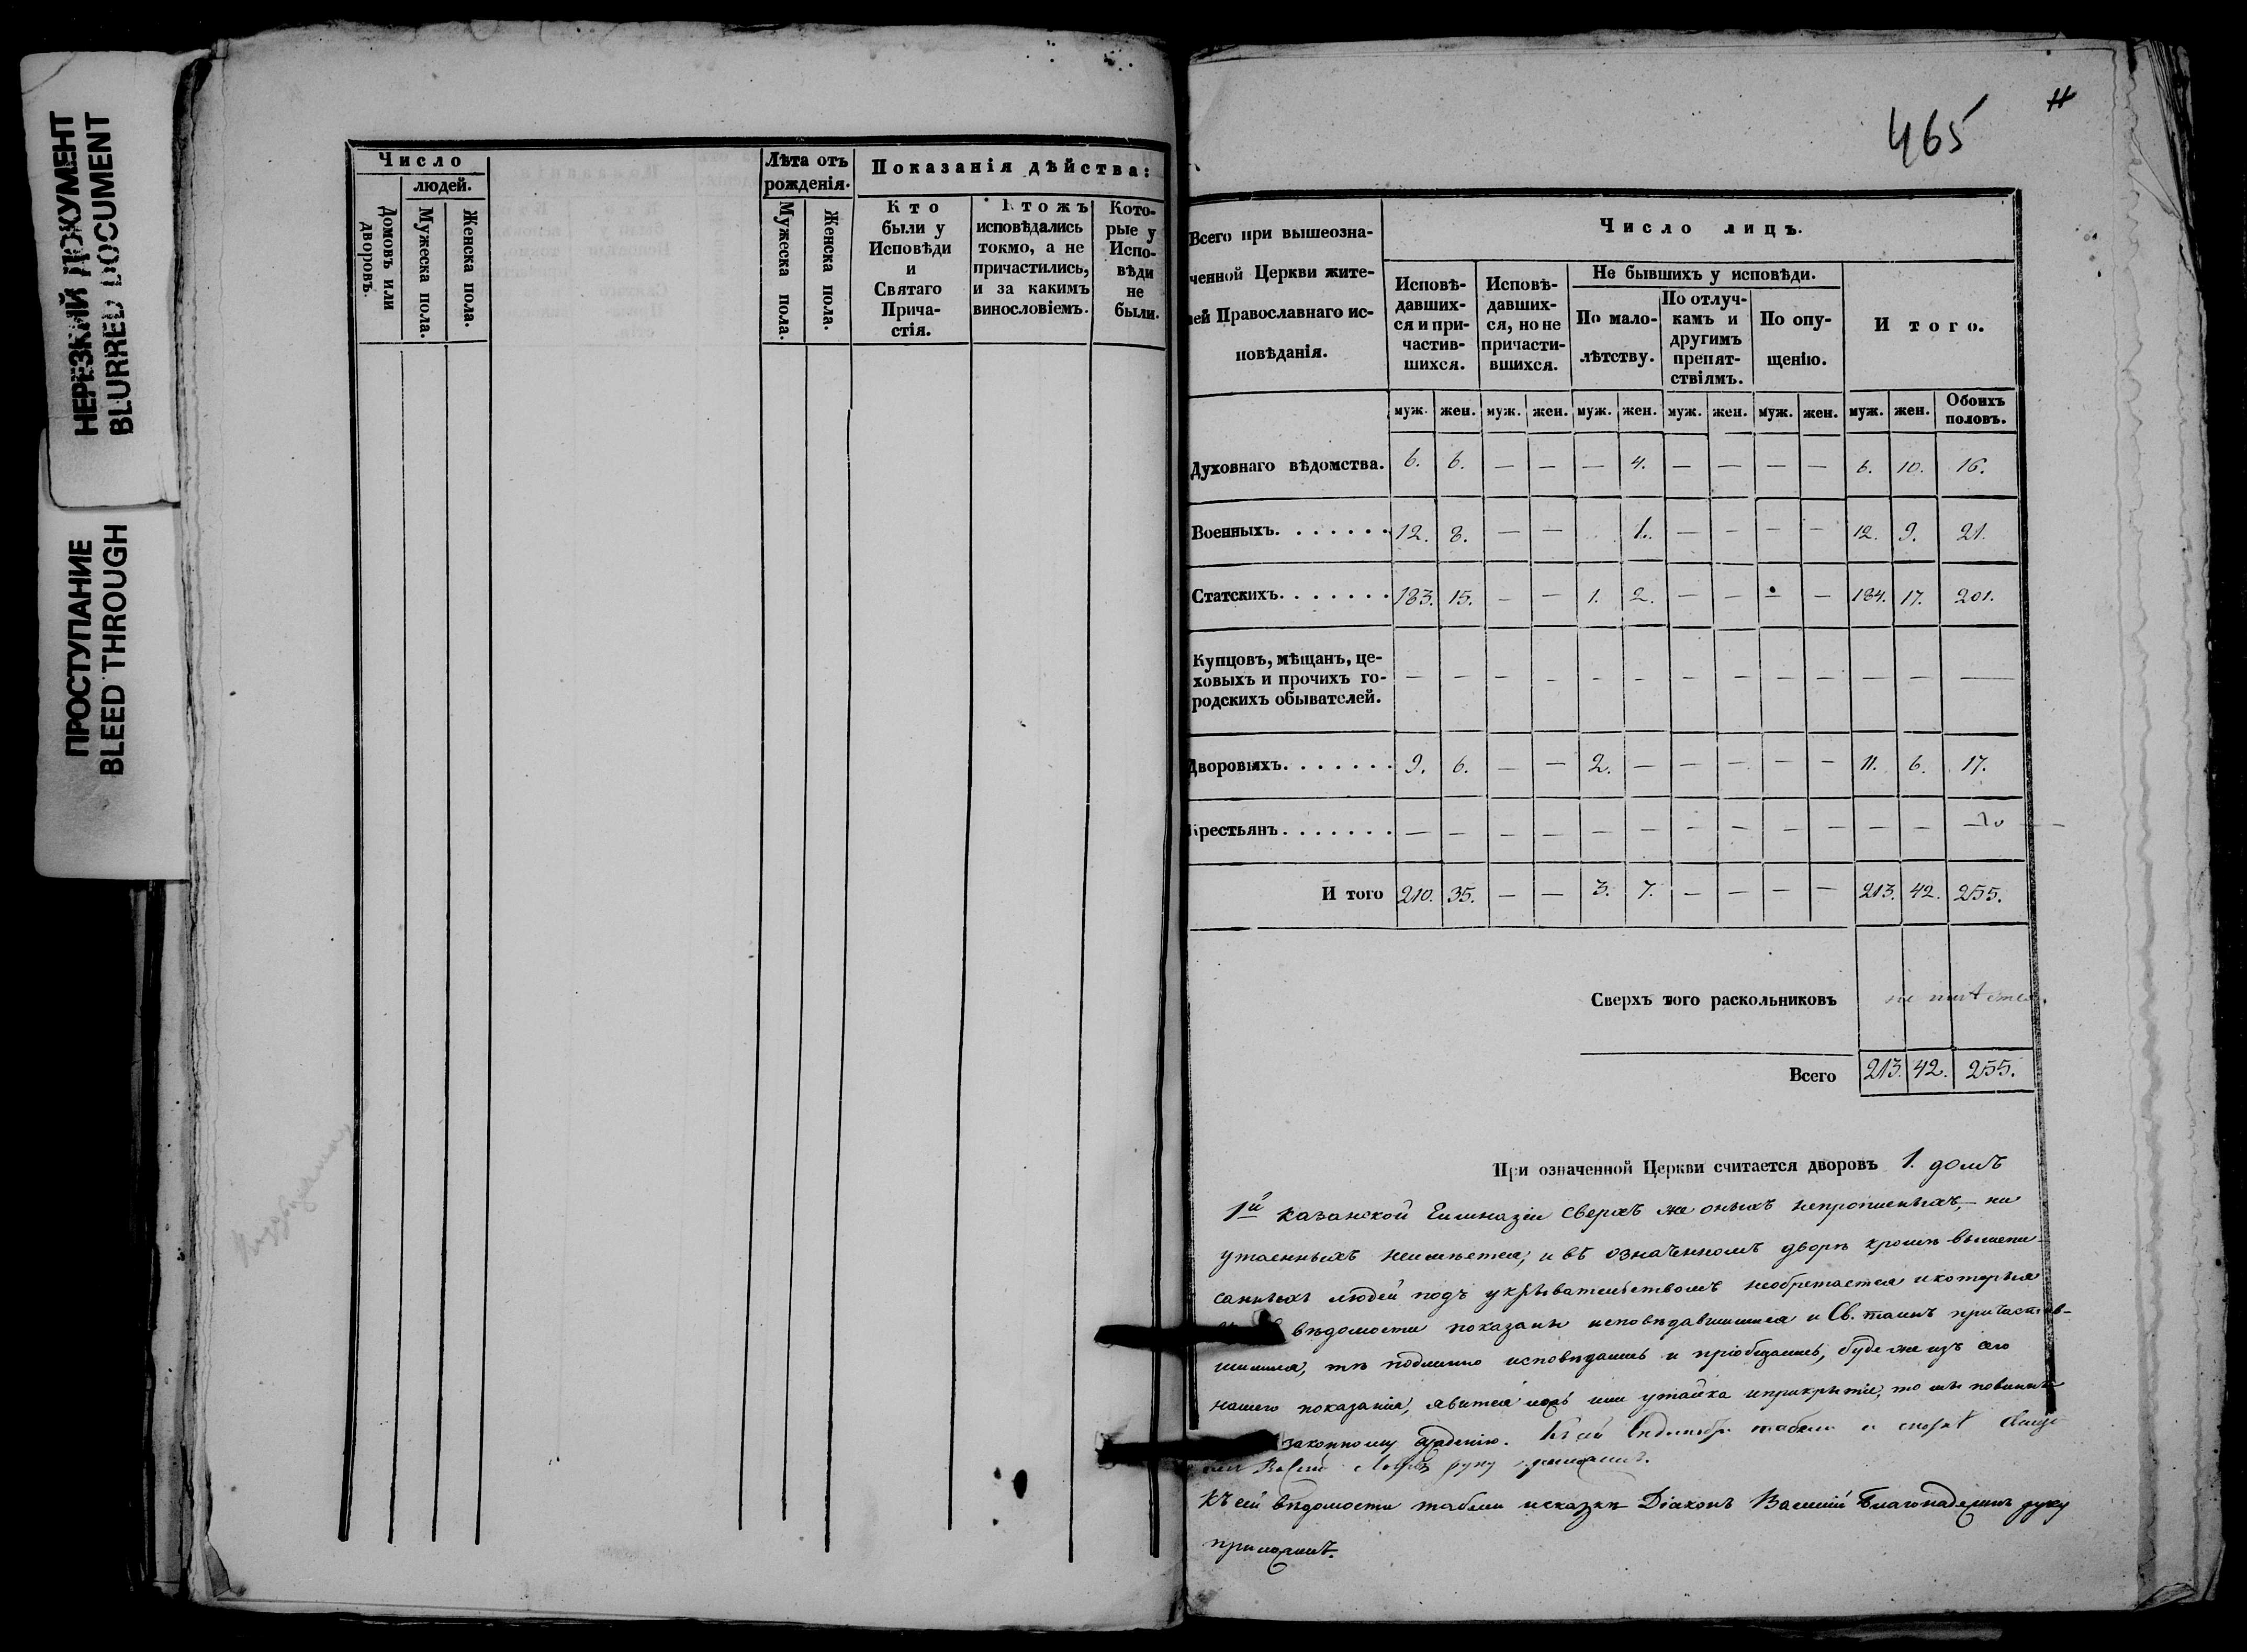 НЕРЕЗКИЙ ДОКУМЕНТ
BLURRED DOCUMENT
ПРОСТУПАНИЕ
BLEED THROUGH
Число
людей.
Домовъ или дворовъ.
Мужеска пола.
Женска пола.
Лѣта отъ
рожденія.
Мужеска пола.
Женска пола.
Показанія дѣйства:
Кто
были у
Исповѣди
и
Святаго
Прича-
стія.
Ктожъ
исповѣдались
токмо, а не
причастились,
и за какимъ
винословіемъ.
Кото-
рые у
Испо-
вѣди
не
были.
465
Всего при вышеозна-
ченной Церкви жите-
лей Православнаго ис-
повѣданія.
Число лицъ.
Исповѣ-
давших-
ся и при-
частив-
шихся.
Исповѣ-
давших-
ся, но не
причасти-
вшихся.
Не бывшихъ у исповѣди.
По мало-
лѣтству.
По отлуч-
камъ и
другимъ
препят-
ствіямъ.
По опу-
щенію.
И того.
муж. жен. муж. жен. муж. жен. муж. жен. муж. жен. муж. жен. Обоихъ половъ.
Духовнаго вѣдомства. 6. 6. — — — 4. — — — — 6. 10. 16.
Военныхъ. . . . . . . 12. 8. — — 1. — — — — 12. 9. 21.
Статскихъ. . . . . . . 183. 15. — — 1. 2. — — — — 184. 17. 201.
Купцовъ, мѣщанъ, це-
ховыхъ и прочихъ го-
родскихъ обывателей. — — — — — — — — — — — — —
Дворовыхъ. . . . . . . 9. 6. — — 2. — — — — — 11. 6. 17.
Крестьянъ . . . . . . . — — — — — — — — — — — — —
И того 210. 35. — — 3. 7. — — — — 213. 42. 255.
Сверхъ того раскольниковъ не имѣется.
Всего 213. 42. 255.
При означенной Церкви считается дворовъ 1. домъ
1й Казанской Гимназіи сверхъ же оныхъ непрописныхъ, — ни
утаенныхъ неимѣется; и въ означенномъ дворѣ кромѣ вышепи-
санныхъ людей подъ укрывательствомъ необретается и которыя
вѣдомости показаны исповѣдавшимися и Св. таинъ причастив-
шимися, тѣ подлинно исповѣдались и пріобщались, буде же изъ сего
нашего показанія, явится ложь или утайка и прикрытіе, то мы повинны
законному сужденію. Къ сей
руку приложилъ.
Къ сей вѣдомости табели и сказкѣ Діаконъ Василій Благонадеждинъ руку
приложилъ.